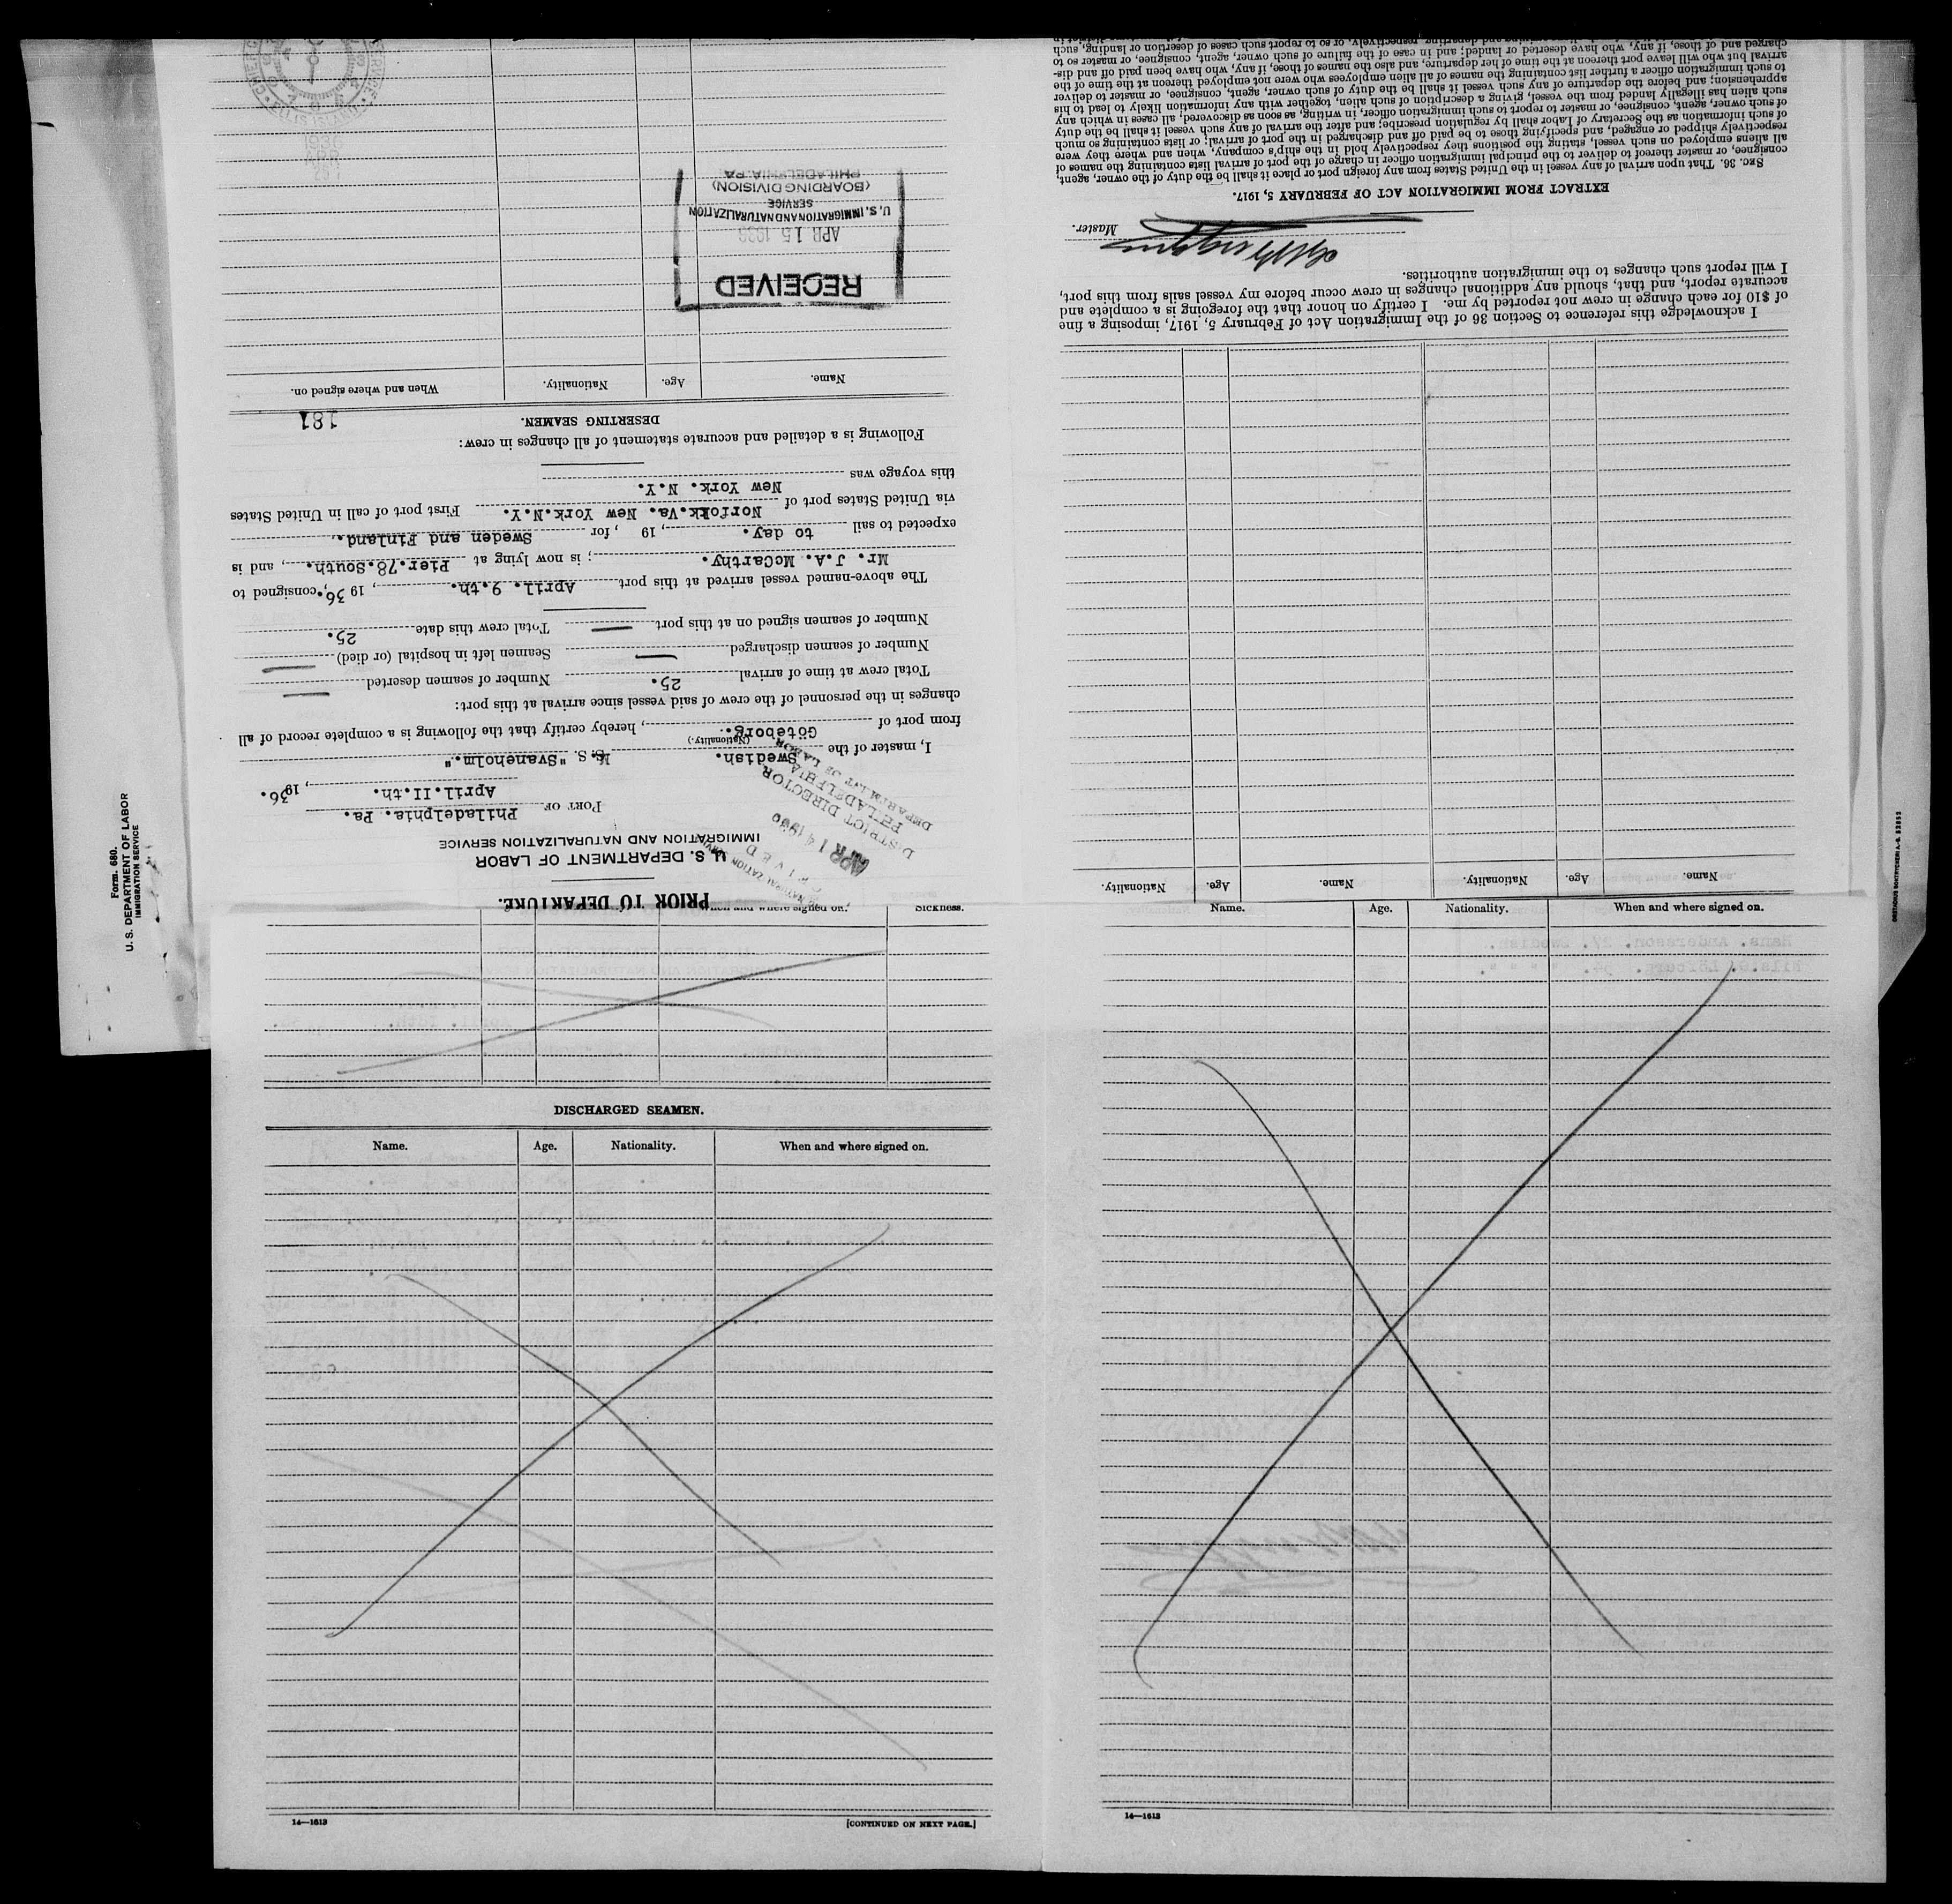 PRIOR TO DEPARTURE.
U. S. DEPARTMENT OF LABOR
IMMIGRATION AND NATURALIZATION SERVICE
APR 14
DISTRICT DIRECTOR
PHILADELPHIA
PORT OF Philadelphia. Pa.
April.II.th. , 1936.
I, master of the Swedish. M.S. "Svaneholm."
(Nationality.)
from port of Göteborg. , hereby certify that the following is a complete record of all
changes in the personnel of the crew of said vessel since arrival at this port:
Total crew at time of arrival 25. Number of seamen deserted —
Number of seamen discharged — Seamen left in hospital (or died) —
Number of seamen signed on at this port — Total crew this date 25.
The above-named vessel arrived at this port April. 9.th. , 19 36., consigned to
Mr. J.A. McCarthy. ; is now lying at Pier.78.South. , and is
expected to sail to day. , 19 , for Sweden and Finland.
via United States port of Norfolk.Va. New York.N.Y. First port of call in United States
this voyage was New York. N.Y.
Following is a detailed and accurate statement of all changes in crew:
DESERTING SEAMEN.
181
Name. Age. Nationality. When and where signed on.
RECEIVED
APR 15 1936
U. S. IMMIGRATION AND NATURALIZATION
SERVICE
(BOARDING DIVISION)
PHILADELPHIA, PA
ELLIS ISLAND
Name. Age. Nationality. Name. Age. Nationality.
I acknowledge this reference to Section 36 of the Immigration Act of February 5, 1917, imposing a fine
of $10 for each change in crew not reported by me. I certify on honor that the foregoing is a complete and
accurate report, and that, should any additional changes in crew occur before my vessel sails from this port,
I will report such changes to the immigration authorities.
Master.
EXTRACT FROM IMMIGRATION ACT OF FEBRUARY 5, 1917.
SEC. 36. That upon arrival of any vessel in the United States from any foreign port or place it shall be the duty of the owner, agent,
consignee, or master thereof to deliver to the principal immigration officer in charge of the port of arrival lists containing the names of
all aliens employed on such vessel, stating the positions they respectively hold in the ship's company, when and where they were
respectively shipped or engaged, and specifying those to be paid off and discharged in the port of arrival; or lists containing so much
of such information as the Secretary of Labor shall by regulation prescribe; and after the arrival of any such vessel it shall be the duty
of such owner, agent, consignee, or master to report to such immigration officer, in writing, as soon as discovered, all cases in which any
such alien has illegally landed from the vessel, giving a description of such alien, together with any information likely to lead to his
apprehension; and before the departure of any such vessel it shall be the duty of such owner, agent, consignee, or master to deliver
to such immigration officer a further list containing the names of all alien employees who were not employed thereon at the time of the
arrival but who will leave port thereon at the time of her departure, and also the names of those, if any, who have been paid off and dis-
charged and of those, if any, who have deserted or landed; and in case of the failure of such owner, agent, consignee, or master so to
Form. 680.
U. S. DEPARTMENT OF LABOR
IMMIGRATION SERVICE
When and where signed on. Sickness.
DISCHARGED SEAMEN.
Name. Age. Nationality. When and where signed on.
14—1613
[CONTINUED ON NEXT PAGE.]
Name. Age. Nationality. When and where signed on.
14—1613